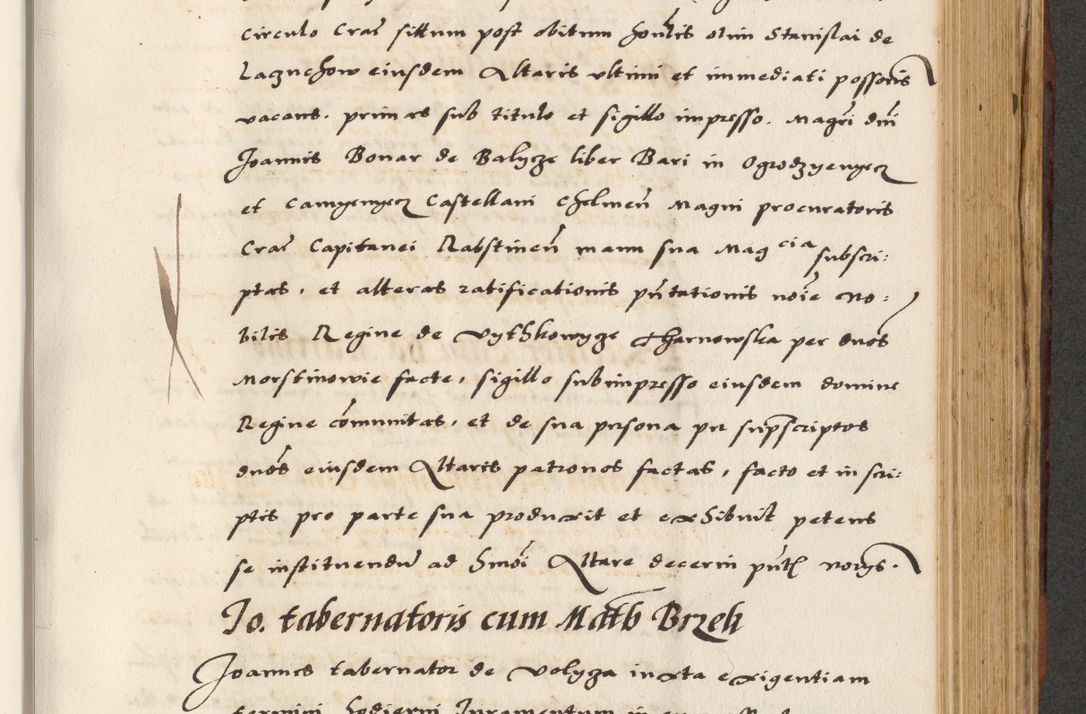 circulo Crac̃ sittum post obitum honlis olim Stanislai de
Laznchow eiusdem Altaris ultimi et immediati possoris
vacans. primas sub titulo et sigillo impresso. Magr̃i dñi
Joannis Bonar de Balycze liber Bari in Ogrodzyenyecz
et Camyenyecz Castellani Chelmeñ Magni procuratoris
Crac̃ Capitanei Rabstineñ manu sua Mag cia subscri:
ptas, et alteras ratificationis pñtationis noie No:
bilis Regine de Vythkowyze Tharnowska per dnos
Morstinowie facte, sigillo subimpresso eiusdem domine
Regine cõmunitas, et de sua persona per supscriptos
dnos eiusdem Altaris patronos factas, facto et in scri:
ptis pro parte sua produxit et exhibuit petens
se instituendũ ad hmõi Altare decerni pñtĩ norys.
Jo. tabernatoris cum Math Brzek
Joannes tabernator de Volycza iuxta exigentiam
termini hodierni Juramentum in